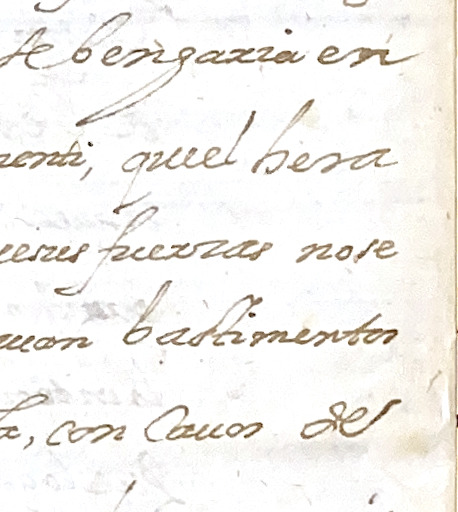 se bengaria en
menti, quel hera
uesus fuerzas nose
uuan bastimentos
ta, con Cauos del